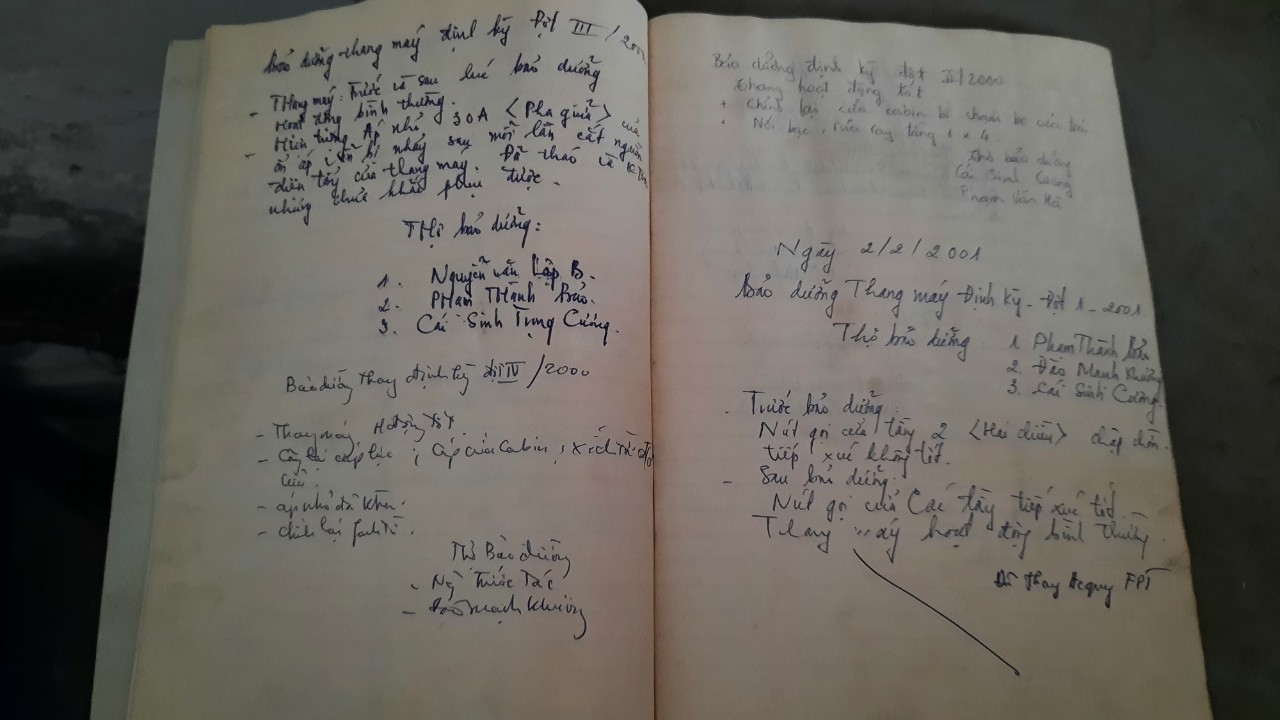 Bảo dưỡng thang máy định kỳ đợt III/200
- Thang máy: Trước và sau lúc bảo dưỡng
Hoạt động bình thường.
- Hiện tượng Áp nhỏ 30A <Pha giữa> của
ổn áp vẫn bị nhảy sau mỗi lần cắt nguồn
điện tổng của thang máy. Đã tháo và
nhưng chưa khắc phục được.
Thợ bảo dưỡng:
1. Nguyễn Văn Lập B.
2. Phạm Thành Bảo.
3. Cái Sinh Trọng Cường.
Bảo dưỡng thang định kỳ đợt IV/2000
- Thang máy H động tốt.
- cáp lực, cáp của Cabin,
cửa
- áp nhỏ đã
- chỉnh lại
Thợ Bảo dưỡng
- Ng Trước Tác
- Đào Mạnh Khương
Bảo dưỡng định kỳ đợt II/2000
thang hoạt động tốt
+ chỉnh lại cửa cabin bị chạm
tầng 1 x 4
Thợ bảo dưỡng
Cái Sinh Cường
Phạm Văn Hà
Ngày 2/2/2001
Bảo dưỡng Thang máy Định kỳ - Đợt 1 - 2001
Thợ bảo dưỡng 1. Phạm Thành Bảo
2. Đào Mạnh Khương
3. Cái Sinh Cường.
- Trước bảo dưỡng:
Nút gọi cửa tầng 2 <Hai chiều> chập chờn.
tiếp xúc không tốt.
- Sau bảo dưỡng:
Nút gọi cửa Các tầng tiếp xúc tốt
Thang máy hoạt động bình thường.
Đã thay Acquy FPT